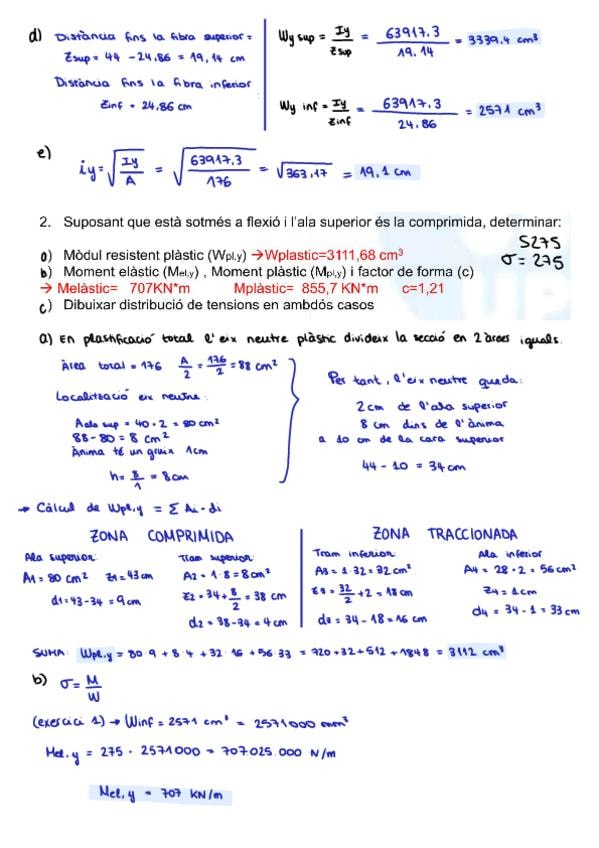 d) Distància fins la fibra superior =
Zsup = 44 - 24,86 = 19,14 cm
Distància fins la fibra inferior
Zinf = 24,86 cm
Wy sup = Iy/Zsup = 63917,3/19.14 = 3339,4 cm³
Wy inf = Iy/Zinf = 63917,3/24,86 = 2571 cm³
e) iy = √(Iy/A) = √(63917,3/176) = √363,17 = 19,1 cm
2. Suposant que està sotmés a flexió i l'ala superior és la comprimida, determinar:
S275
σ = 275
a) Mòdul resistent plàstic (Wpl,y) →Wplastic=3111,68 cm³
b) Moment elàstic (Mel,y) , Moment plàstic (Mpl,y) i factor de forma (c)
→ Melàstic= 707KN*m Mplàstic= 855,7 KN*m c=1,21
c) Dibuixar distribució de tensions en ambdós casos
a) En plastificació total l'eix neutre plàstic divideix la secció en 2 àrees iguals.
Àrea total = 176 A/2 = 176/2 = 88 cm²
Localització eix neutre:
Aala sup = 40 · 2 = 80 cm²
88 - 80 = 8 cm²
Ànima té un gruix 1cm
h = 8/1 = 8cm
Per tant, l'eix neutre queda:
2cm de l'ala superior
8 cm dins de l'ànima
a 10 cm de la cara superior
44 - 10 = 34cm
→ Càlcul de Wpl,y = Σ Ai · di
ZONA COMPRIMIDA
Ala superior:
A1 = 80 cm² Z1 = 43 cm
d1 = 43 - 34 = 9 cm
Tram superior:
A2 = 1 · 8 = 8 cm²
Z2 = 34 + 8/2 = 38 cm
d2 = 38 - 34 = 4 cm
ZONA TRACCIONADA
Tram inferior:
A3 = 1 · 32 = 32 cm²
Z3 = 32/2 + 2 = 18 cm
d3 = 34 - 18 = 16 cm
Ala inferior
A4 = 28 · 2 = 56 cm²
Z4 = 1 cm
d4 = 34 - 1 = 33 cm
SUMA: Wpl,y = 80 · 9 + 8 · 4 + 32 · 16 + 56 · 33 = 720 + 32 + 512 + 1848 = 3112 cm³
b) σ = M/W
(exercici 1) → Winf = 2571 cm³ = 2571000 mm³
Mel,y = 275 · 2571000 = 707025.000 N/m
Mel,y = 707 KN/m